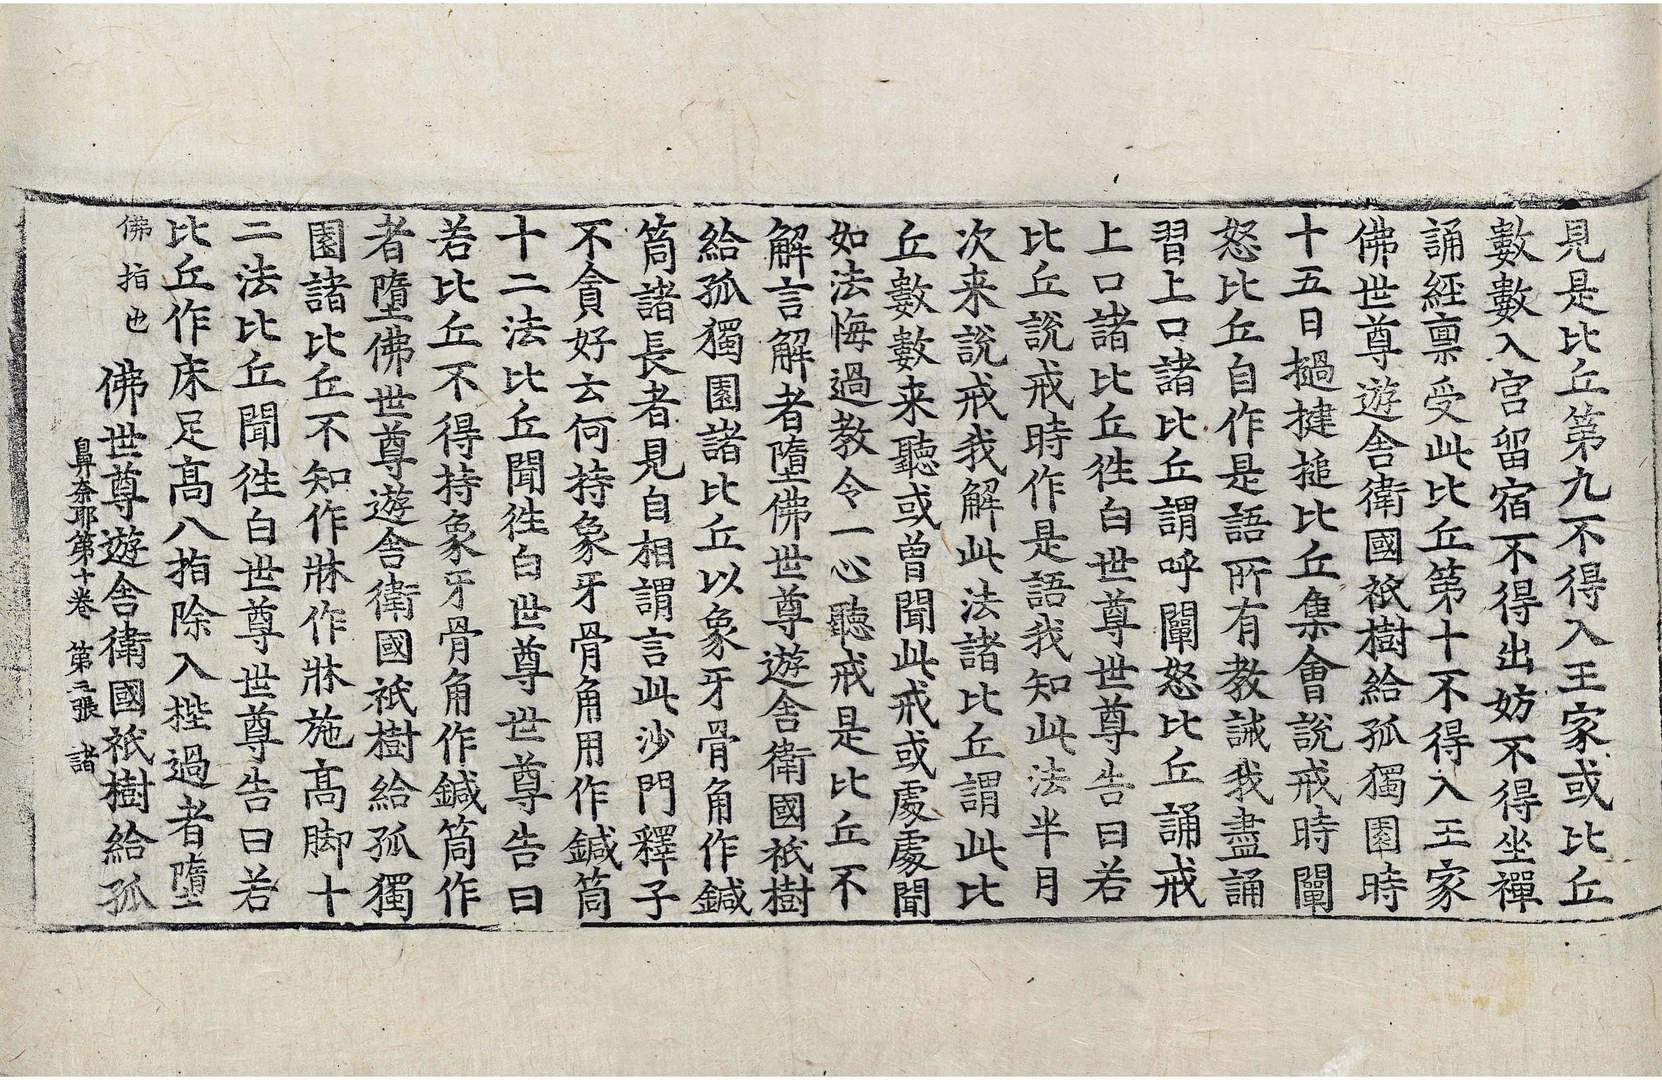 見是比丘第九不得入王家或比丘
數數入宮留宿不得出妨不得坐禪
誦經禀受此比丘第十不得入王家
佛世尊遊舎衛國祇樹給孤獨園時
十五日撾揵搥比丘集會說戒時闡
怒比丘自作是語所有教誡我盡誦
習上口諸比丘謂呼闡怒比丘誦戒
上口諸比丘徃白世尊世尊告曰若
比丘說戒時作是語我知此法半月
次来說戒我解此法諸比丘謂此比
丘數數来聽或曾聞此戒或處處聞
如法悔過教令一心聽戒是比丘不
解言解者墮佛世尊遊舎衛國祇樹
給孤獨園諸比丘以象牙骨角作鍼
筒諸長者見自相謂言此沙門釋子
不貪好云何持象牙骨角用作鍼筒
十二法比丘聞徃白世尊世尊告曰
若比丘不得持象牙骨角作鍼筒作
者墮佛世尊遊舎衛國祇樹給孤獨
園諸比丘不知作牀作牀施高脚十
二法比丘聞徃白世尊世尊告曰若
比丘作床足高八指除入梐過者墮
佛指也 佛世尊遊舎衛國祇樹給孤
鼻奈耶第十卷 第二張 諸